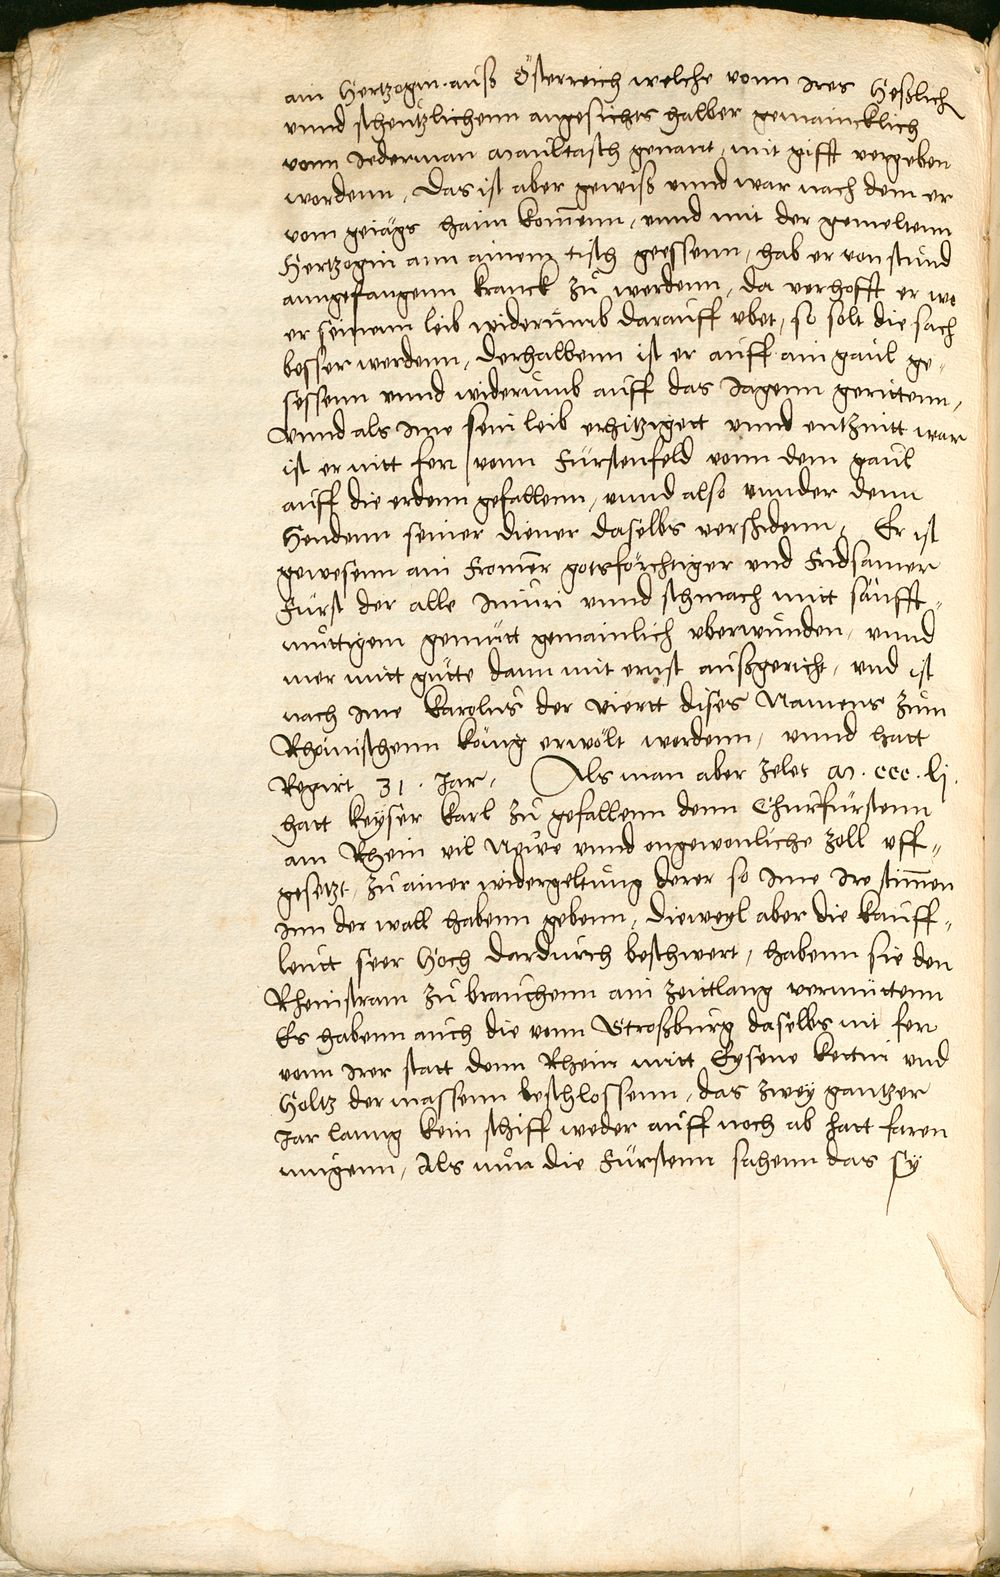 ain Hertzogin auß Österreich welche vonn Ires Heßlich
vnnd scheutzlichenn angesichts halber gemaincklich
vonn Iederman Maultasch genant, mit gifft vergeben
wordenn, Das ist aber gewiß vnnd war nach dem er
vom geiägs haim kommenn, vnnd mit der gemeltenn
Hertzogin ann ainem tisch geessenn, hab er von stund
anngefangenn kranck zu werdenn, da verhofft er wo
er seinem leib widerumb darauff vbet, so solt die sach
besser werdenn, Derhalbenn ist er auff ain gaul ge-
sessenn vnnd widerumb auff das Iagenn gerittenn,
Vnnd als Ime sein leib erhitzigett vnnd entznitt war
ist er nitt fer vonn Fürstenfeld vonn dem gaul
auff die erdenn gefallenn, vnnd also vnnder denn
Hendenn seiner diener daselbs verschidenn, Er ist
gewesenn ain Fromer gotsförchtiger vnd Fridsamer
Fürst der alle Iniuri vnnd schmach mitt säufft-
muttigem gemütt gemainlich vberwunden, vnnd
mer mitt gütte dann mit ernst außgericht, vnd ist
nach Ime Karolus der Viertt dises Namens zum
Rhömischenn Köng erwölt werdenn, vnnd hatt
Regirt 31. Jar, Als man aber zelet M. ccc. lj.
hatt Keyser Karl zu gefallenn denn Churfürstenn
am Rhein vil Newe vnnd ongewonliche zoll vff-
gesetzt, zu ainer widergeltung derer so Ime Ire stimmen
Inn der wall habenn gebenn, Dieweyl aber die kauff-
leutt seer Hoch dardurch beschwert, habenn sie den
Rheinstram zu brauchenn ain zeittlang vermittenn
Es habenn auch die vonn Stroßburg daselbs nit fer
vonn Irer statt denn Rhein mitt Eysene kettni vnd
Holtz dermassenn beschlossenn, das zwey gantzer
Jar lanng kein schiff weder auff noch ab hatt faren
mugenn, Als nun die Fürstenn sahenn das sy